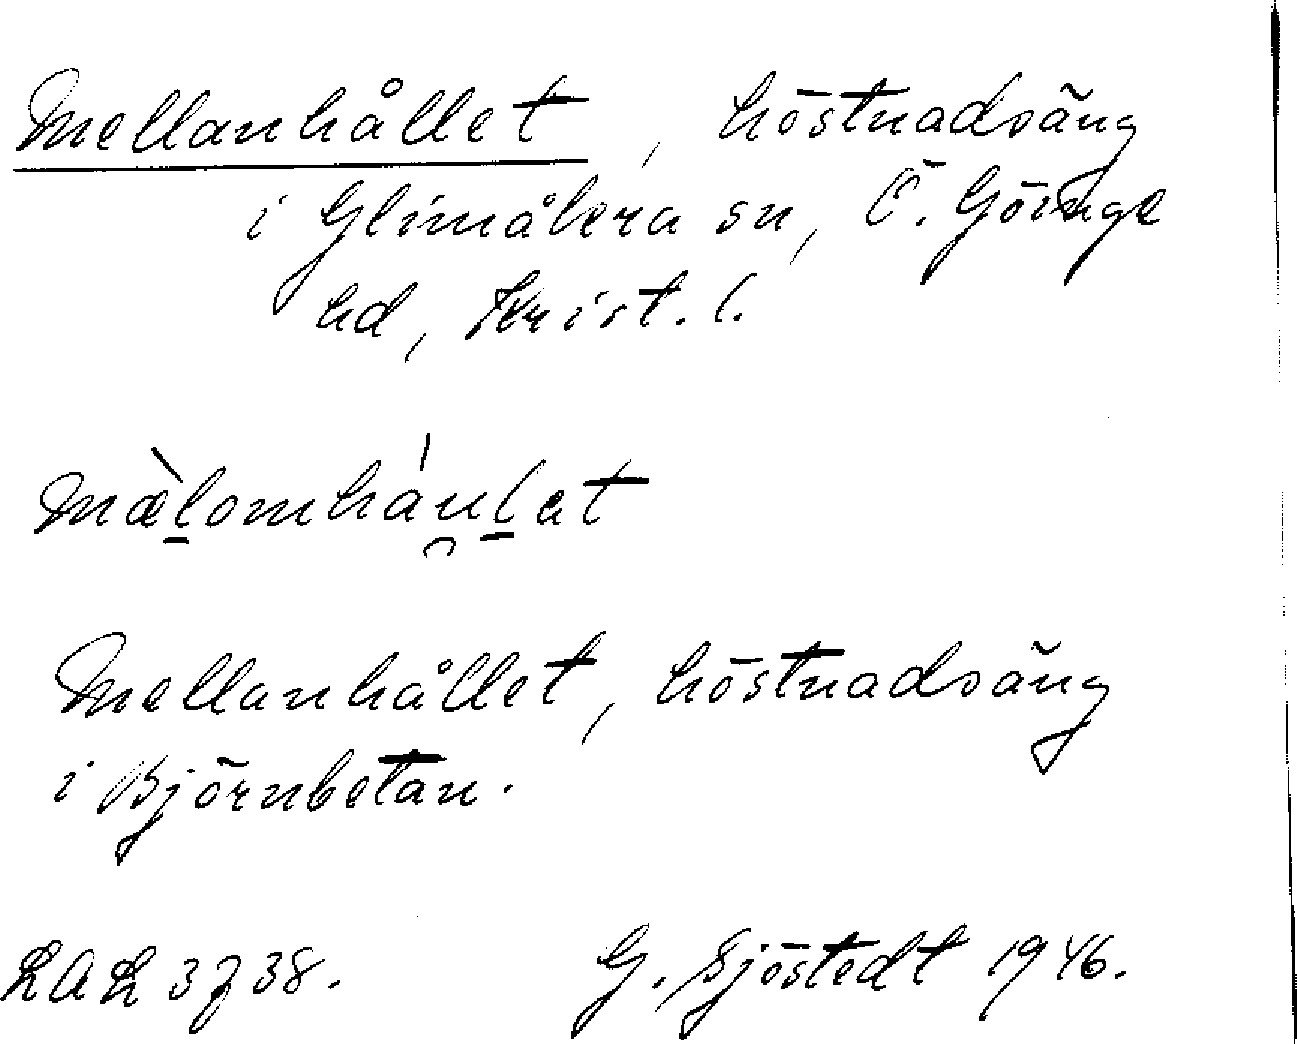 Mellanhållet, höstnadsäng
i Glimåkra sn, Ö. Göinge
hd, Krist. l.
Mellanhållet, höstnadsäng
i Björnbetan.
G. Sjöstedt 1946.